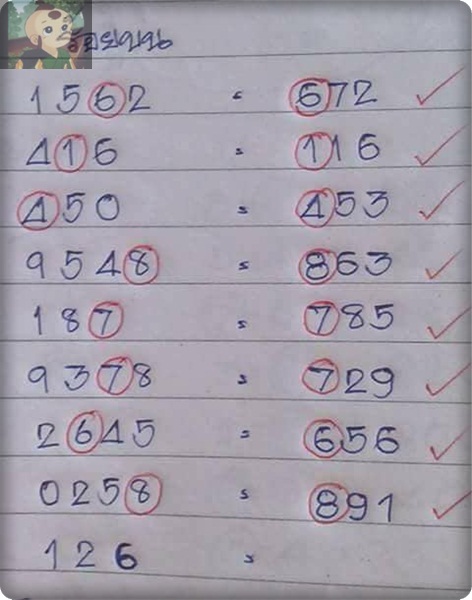 ร้อยบน
1562 = 672 ✓
416 = 116 ✓
450 = 453 ✓
9548 = 863 ✓
187 = 785 ✓
9378 = 729 ✓
2645 = 656 ✓
0258 = 891 ✓
126 =